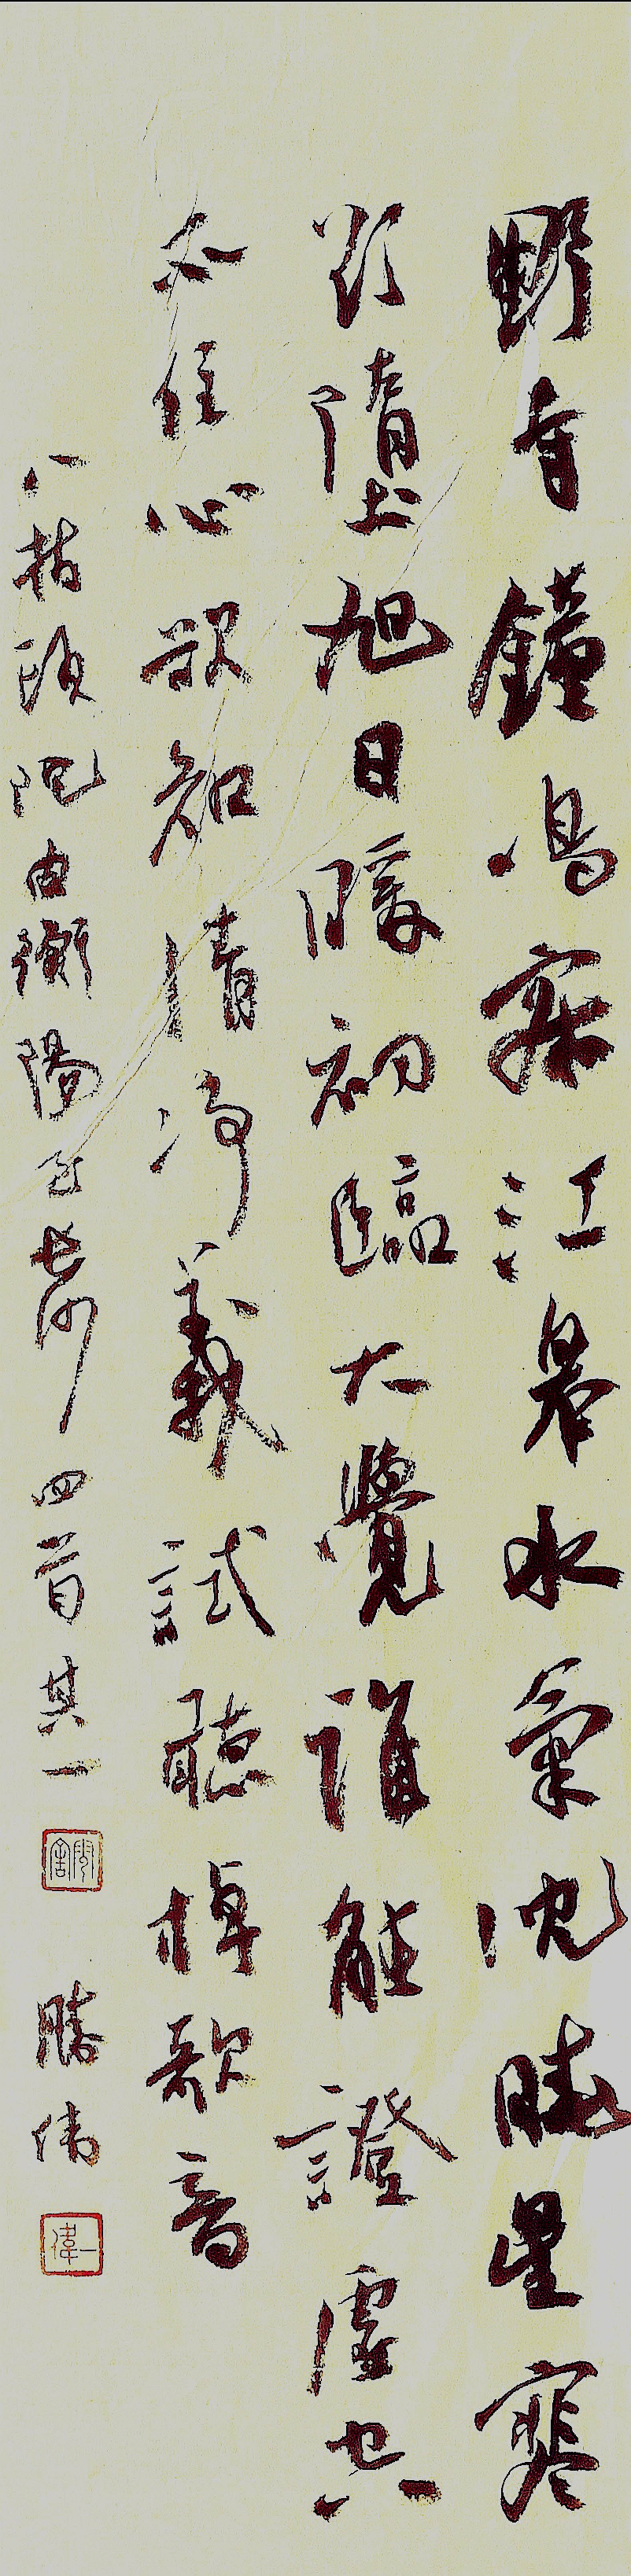 野寺鐘鳴寂江皋水氣沈曉星寒
欲墮旭日暖初臨大覺誰能證虛空
不住心欲知清淨義試聽棹歌音
八指頭陀由衡陽至長沙四首其一
勝偉